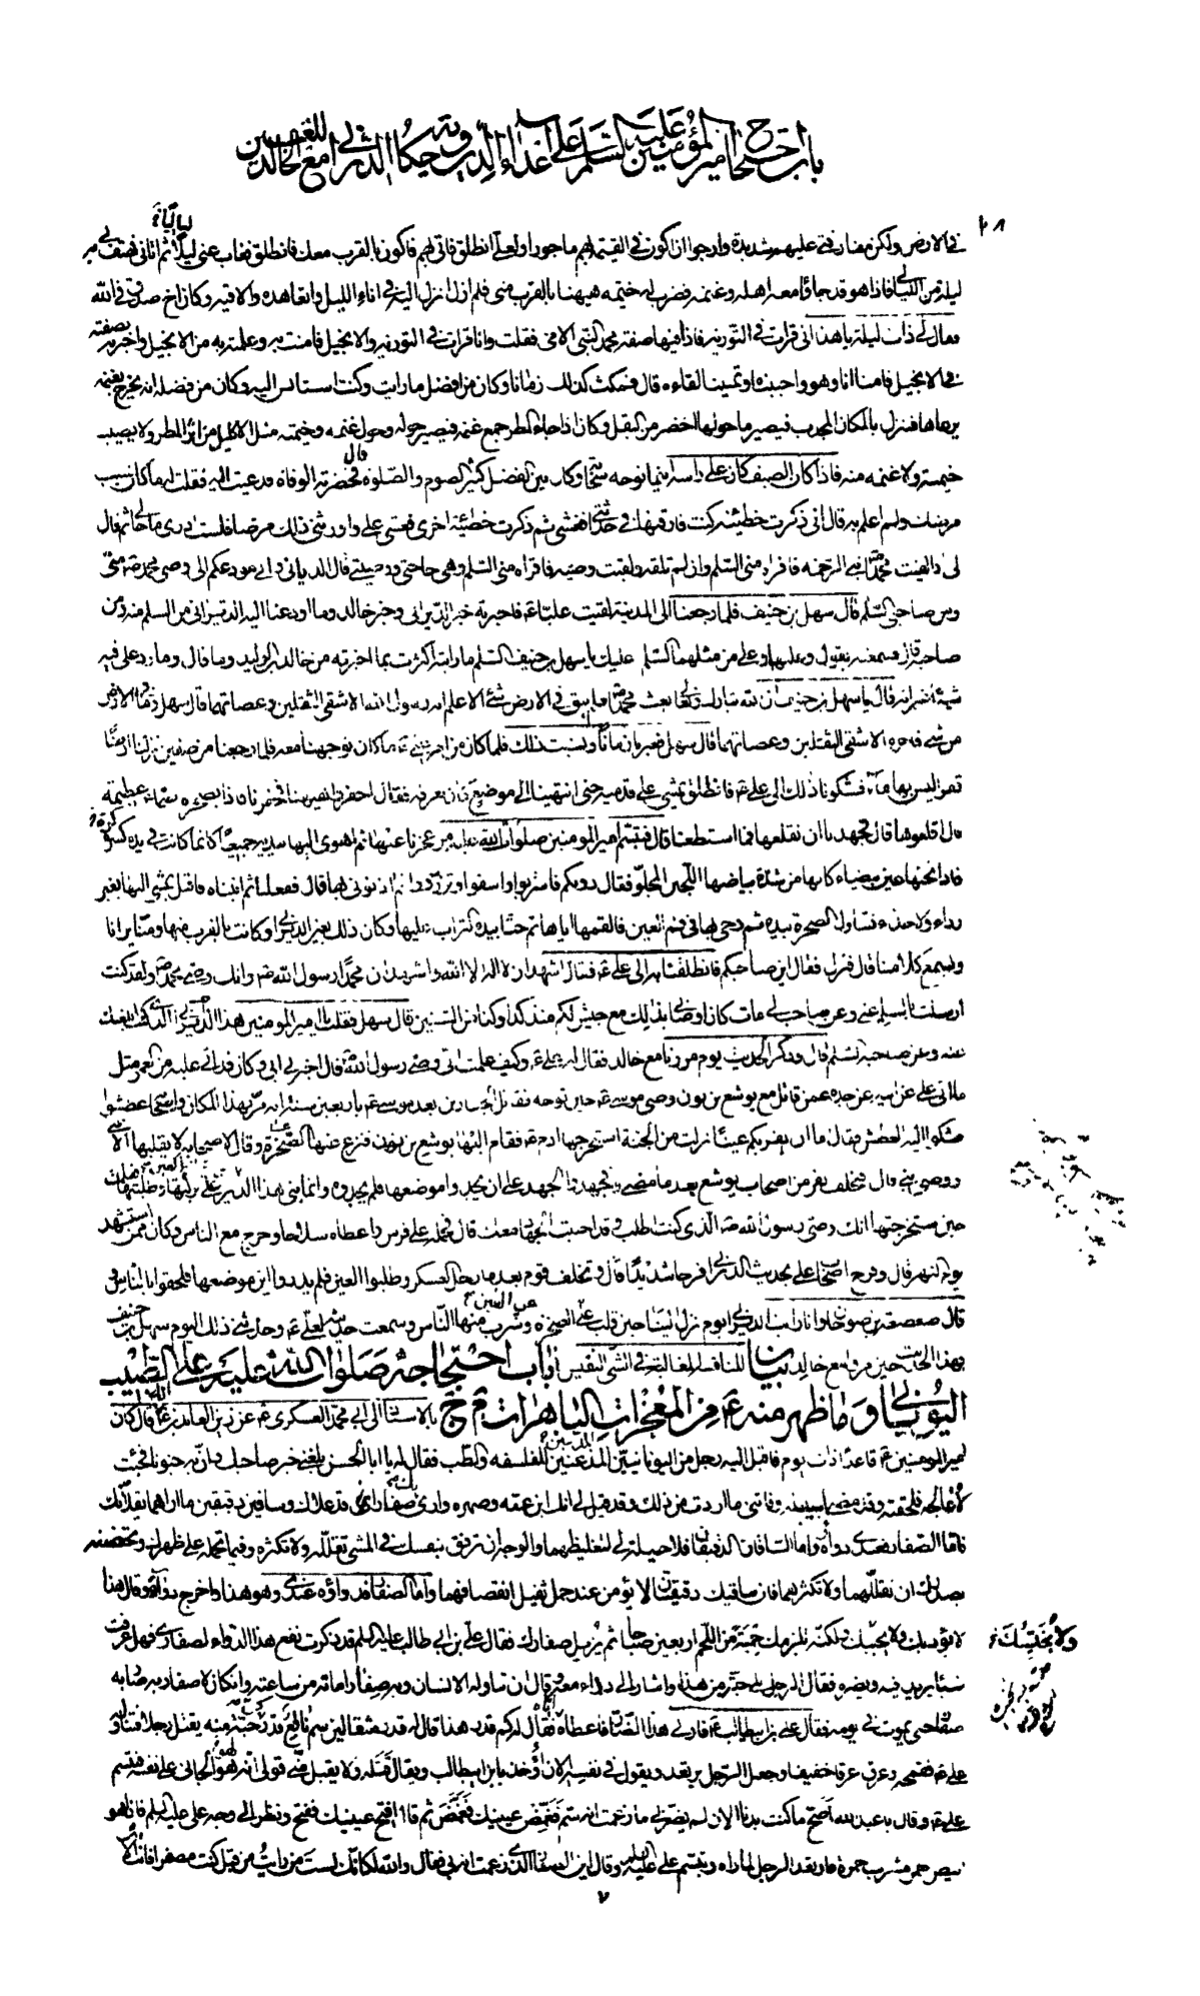 باب احتجاج امير المؤمنين عليه السلم على اعداء الدين وفيه حكاية الديراني مع الخالد اللعين
٢٨
في الارض ولكن مفارقتي عليهم شديدة وارجوا ان اكون في القيمة بهم ماجورا ولعلي انطلق فاتي بهم فاكون بالقرب معك فانطلق فغاب عني ليلا ثم اتاني فهتف بي
ليلة من الليالي فاذا هو قد جاء ومعه اهله وغنمه فضرب له خيمة ههنا بالقرب مني فلم ازل انزل اليه في اناء الليل واتعاهده والاقيه وكان اخ صدق في الله
فقال لي ذات ليلة يا هذا اني قرات في التورية فاذا فيها صفة محمد النبي الامي فقلت وانا قرات في التورية والانجيل فامنت به وعلمته به من الانجيل واخبرته بصفته
في الانجيل فامنا انا وهو واحببناه وتمنينا لقاءه قال فمكث كذلك زمانا وكان من افضل ما رايت وكنت استانس اليه وكان من فضله انه يخرج بغنمه
يرعاها فينزل بالمكان المجدب فيصير ما حولها اخضر من البقل وكان اذا جاء المطر جمع غنمه فيصير حوله وحول غنمه وخيمته مثل الاكليل من اثر المطر ولا يصيب
خيمته ولا غنمه منه فاذا كان الصيف كان على راسه اينما توجه سحابة وكان بين الفضل كثير الصوم والصلوة قال فحضرته الوفاة فدعيت اليه فقلت له ما كان سبب
مرضك ولم اعلم به قال اني ذكرت خطيئة كنت قارفتها في حداثتي فغشي ثم ذكرت خطيئة اخرى فغشي علي واورثني ذلك مرضا فلست ادري ما حالي ثم قال
لي فان لقيت محمدا نبي الرحمة فاقراه مني السلم وان لم تلقه ولقيت وصيه فاقراه مني السلم وهي حاجتي ووصيتي قال الديراني واني مودعكم الى وصي محمد مني
ومن صاحبي السلم قال سهل بن حنيف فلما رجعنا الى المدينة لقيت عليا فاخبرته خبر الديراني وخبر خالد وما اودعنا اليه الديراني من السلم منه ومن
صاحبه قال فسمعته يقول وعليهما وعلى من مثلهما السلم وعليك يا سهل بن حنيف السلم وما رايته اكترث بما اخبرته من خالد بن الوليد وما قال وما رد علي فيه
شيئا غير انه قال يا سهل بن حنيف ان الله تبارك وتعالى بعث محمدا فلم يبق في الارض شيء الا علم انه رسول الله الا شقي الثقلين وعصاتهما قال سهل وما في الارض
من شيء فاخره الا شقي الثقلين وعصاتهما قال سهل فعبرنا زمانا ونسيت ذلك فلما كان من امر علي ما كان توجهنا معه فلما رجعنا من صفين نزلنا ارضا
قفرا ليس بها ماء فشكونا ذلك الى علي فانطلق يمشي على قدميه حتى انتهينا الى موضع كان يعرفه فقال احفروا ههنا فحفرنا فاذا بصخرة صماء عظيمة
قال اقلعوها قال فجهدنا ان نقلعها فما استطعنا قال فتبسم امير المومنين صلوات الله عليه من عجزنا عنها ثم اهوى اليها بيديه جميعا كانما كانت في يده كرة
فاذا تحتها عين بيضاء كانها من شدة بياضها اللجين المجلو فقال دونكم فاشربوا واسقوا وتزودوا ثم اذنوني بها قال ففعلنا ثم اتيناه فاقبل يمشي اليها بغير
رداء ولا حذاء فتناول الصخرة بيده ثم دحى بها في فم العين فالقمها اياها ثم حثا بيده التراب عليها وكان ذلك بعين الديراني وكانت بالقرب منها ومنا يرانا
ويسمع كلامنا قال فنزل فقال اين صاحبكم فانطلقنا به الى علي فقال اشهد ان لا اله الا الله واشهد ان محمدا رسول الله وانك وصي محمد ولقد كنت
ارسلت بالسلم عني وعن صاحب لي مات كان اوصاني بذلك مع جيش لكم منذ كذا وكذا من السنين قال سهل فقلت يا امير المومنين هذا الديراني الذي كنت ابلغتك
عنه وعن صاحبه السلم قال وذكر الحديث يوم مررنا مع خالد فقال له علي وكيف علمت اني وصي رسول الله قال اخبرني ابي وكان قد اتى عليه من العمر مثل
ما اتى علي عن ابيه عن جده عمن قاتل مع يوشع بن نون وصي موسى حين توجه فقاتل الجبارين بعد موسى باربعين سنة انه مر بهذا المكان واصحابه عطشوا
فشكوا اليه العطش فقال اما ان بقربكم عينا نزلت من الجنة استخرجها ادم فقام اليها يوشع بن نون فنزع عنها الصخرة ثم شرب وقال لاصحابه لا يقلبها الا نبي
او وصي نبي قال فتخلف نفر من اصحاب يوشع بعد ما مضى فجهدوا الجهد على ان يجدوا موضعها فلم يجدوه وانما بني هذا الدير على العين وعلى بركتها وطلبتها فعلمت
حين استخرجتها انك وصي رسول الله الذي كنت اطلب وقد احببت الجهاد معك قال فحمله على فرس واعطاه سلاحا وخرج مع الناس وكان ممن استشهد
يوم النهر قال وفرح اصحاب علي بحديث الديراني فرحا شديدا قال وتخلف قوم بعد ما رحل العسكر وطلبوا العين فلم يدروا اين موضعها فلحقوا بالناس و
قال صعصعة بن صوحان وانا رايت الديراني يوم نزل الينا حين قلب علي الصخرة عن العين وشرب منها الناس وسمعت حديثه لعلي وحدثني ذلك اليوم سهل بن حنيف
بهذا الحديث حين مر مع خالد بيان للناقد المغالبة في الشيء النفيس باب احتجاجه صلوات الله عليه على الطبيب
اليوناني وما ظهر منه من المعجزات الباهرات ج بالاسناد الى ابي محمد العسكري عن زين العابدين انه قال كان
امير المومنين قاعدا ذات يوم فاقبل اليه رجل من اليونانيين المدعين للفلسفه والطب فقال له يا ابا الحسن بلغني خبر صاحبك وان به جنونا فجئت
لاعالجه فلحقته وقد مضى لسبيله وفاتني ما اردت من ذلك وقد قيل لي انك ابن عمه وصهره وارى بك صفارا قد علاك وساقين دقيقين ما اراهما تقلانك
فاما الصفار فعندي دواؤه واما الساقان الدقيقان فلا حيلة لي لتغليظهما والوجه ان ترفق بنفسك في المشي تقلله ولا تكثره وفيما تحمله على ظهرك وتحتضنه
بصدرك ان تقللهما ولا تكثرهما فان ساقيك دقيقتان لا يؤمن عند حمل ثقيل انقصافهما واما الصفار فدواؤه عندي وهو هذا واخرج دواءه وقال هذا
لا يؤذيك ولا يخيسك ولكنه تلزمك حمية من اللحم اربعين صباحا ثم يزيل صفارك فقال علي بن ابي طالب عليه السلم قد ذكرت نفع هذا الدواء لصفاري فهل عرفت
شيئا يزيد فيه ويضره فقال الرجل بلى حبة من هذا واشار الى دواء معه وقال ان تناوله الانسان وبه صفار اماته من ساعته وان كان لا صفار به صار به
صفار حتى يموت في يومه فقال علي بن ابيطالب فارني هذا الضار فاعطاه اياه فقال له كم قدر هذا قال له قدره مثقالين سم ناقع قدر كل حبة منه يقتل رجلا فتناوله
علي فقمحه وعرق عرقا خفيفا وجعل الرجل يرتعد ويقول في نفسه الان اؤخذ بابن ابيطالب ويقال قتله ولا يقبل مني قولي انه لهو الجاني على نفسه فتبسم
علي وقال يا عبد الله اصح ما كنت بدنا الان لم يضرني ما زعمت انه سم فغمض عينيك فغمض ثم قال افتح عينيك ففتح ونظر الى وجه علي عليه السلم فاذا هو
ابيض احمر مشرب حمرة فارتعد الرجل لما راه وتبسم علي عليه السلم وقال اين الصفار الذي زعمت انه بي فقال والله لكانك لست من رايت من قبل كنت مصفرا فانت الان
ولا يخيسك
٧